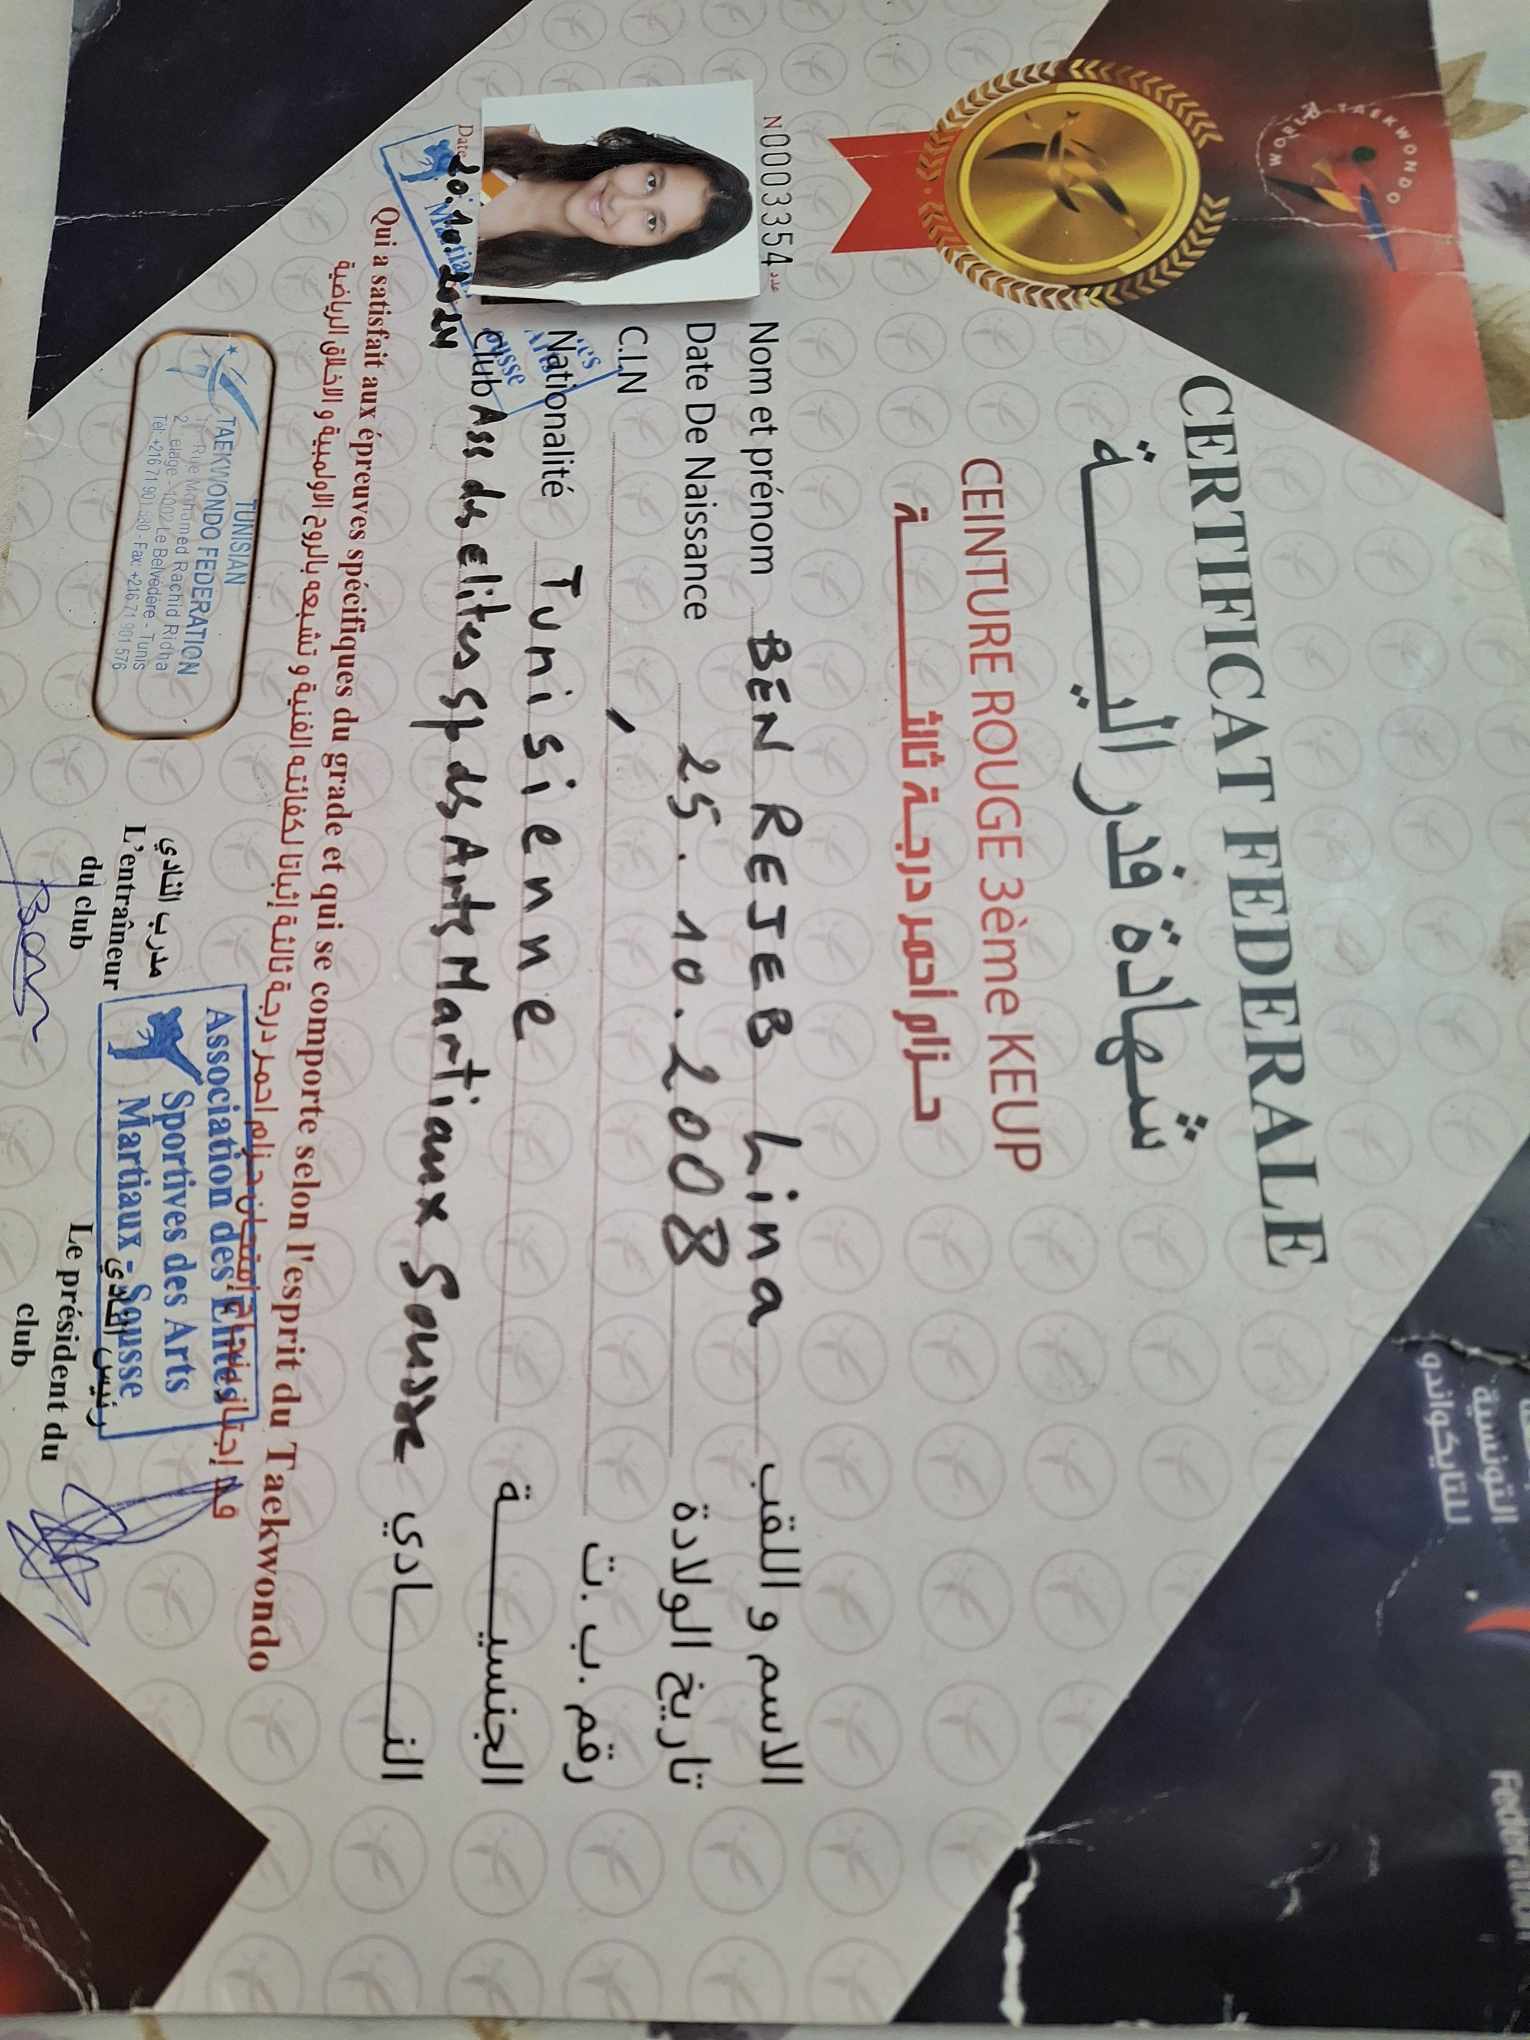 WORLD TAEKWONDO
التونسية
للتايكواندو
Federation
CERTIFICAT FEDERALE
شهادة فدرالية
CEINTURE ROUGE 3ème KEUP
حزام أحمر درجة ثالثة
N0003354 عدد
Nom et prénom BEN REJEB Lina الاسم و اللقب
Date De Naissance 25.10.2008 تاريخ الولادة
C.I.N رقم ب.ت.
Nationalité Tunisienne الجنسية
Club Ass des elites sp ds Arts Martiaux Sousse النادي
Date 20.10.2024
Qui a satisfait aux épreuves spécifiques du grade et qui se comporte selon l'esprit du Taekwondo
قد إجتاز بنجاح إمتحان حزام احمر درجة ثالثة إثباتا لكفائته الفنية و تشبعه بالروح الاولمبية و الاخلاق الرياضية
TUNISIAN
TAEKWONDO FEDERATION
Rue Mohamed Rachid Ridha
2 etage - 1002 Le Belvédère - Tunis
Fax: +216 71 901 576
مدرب النادي
L'entraîneur
du club
Association des Elites
Sportives des Arts
Martiaux - Sousse
رئيس النادي
Le président du
club